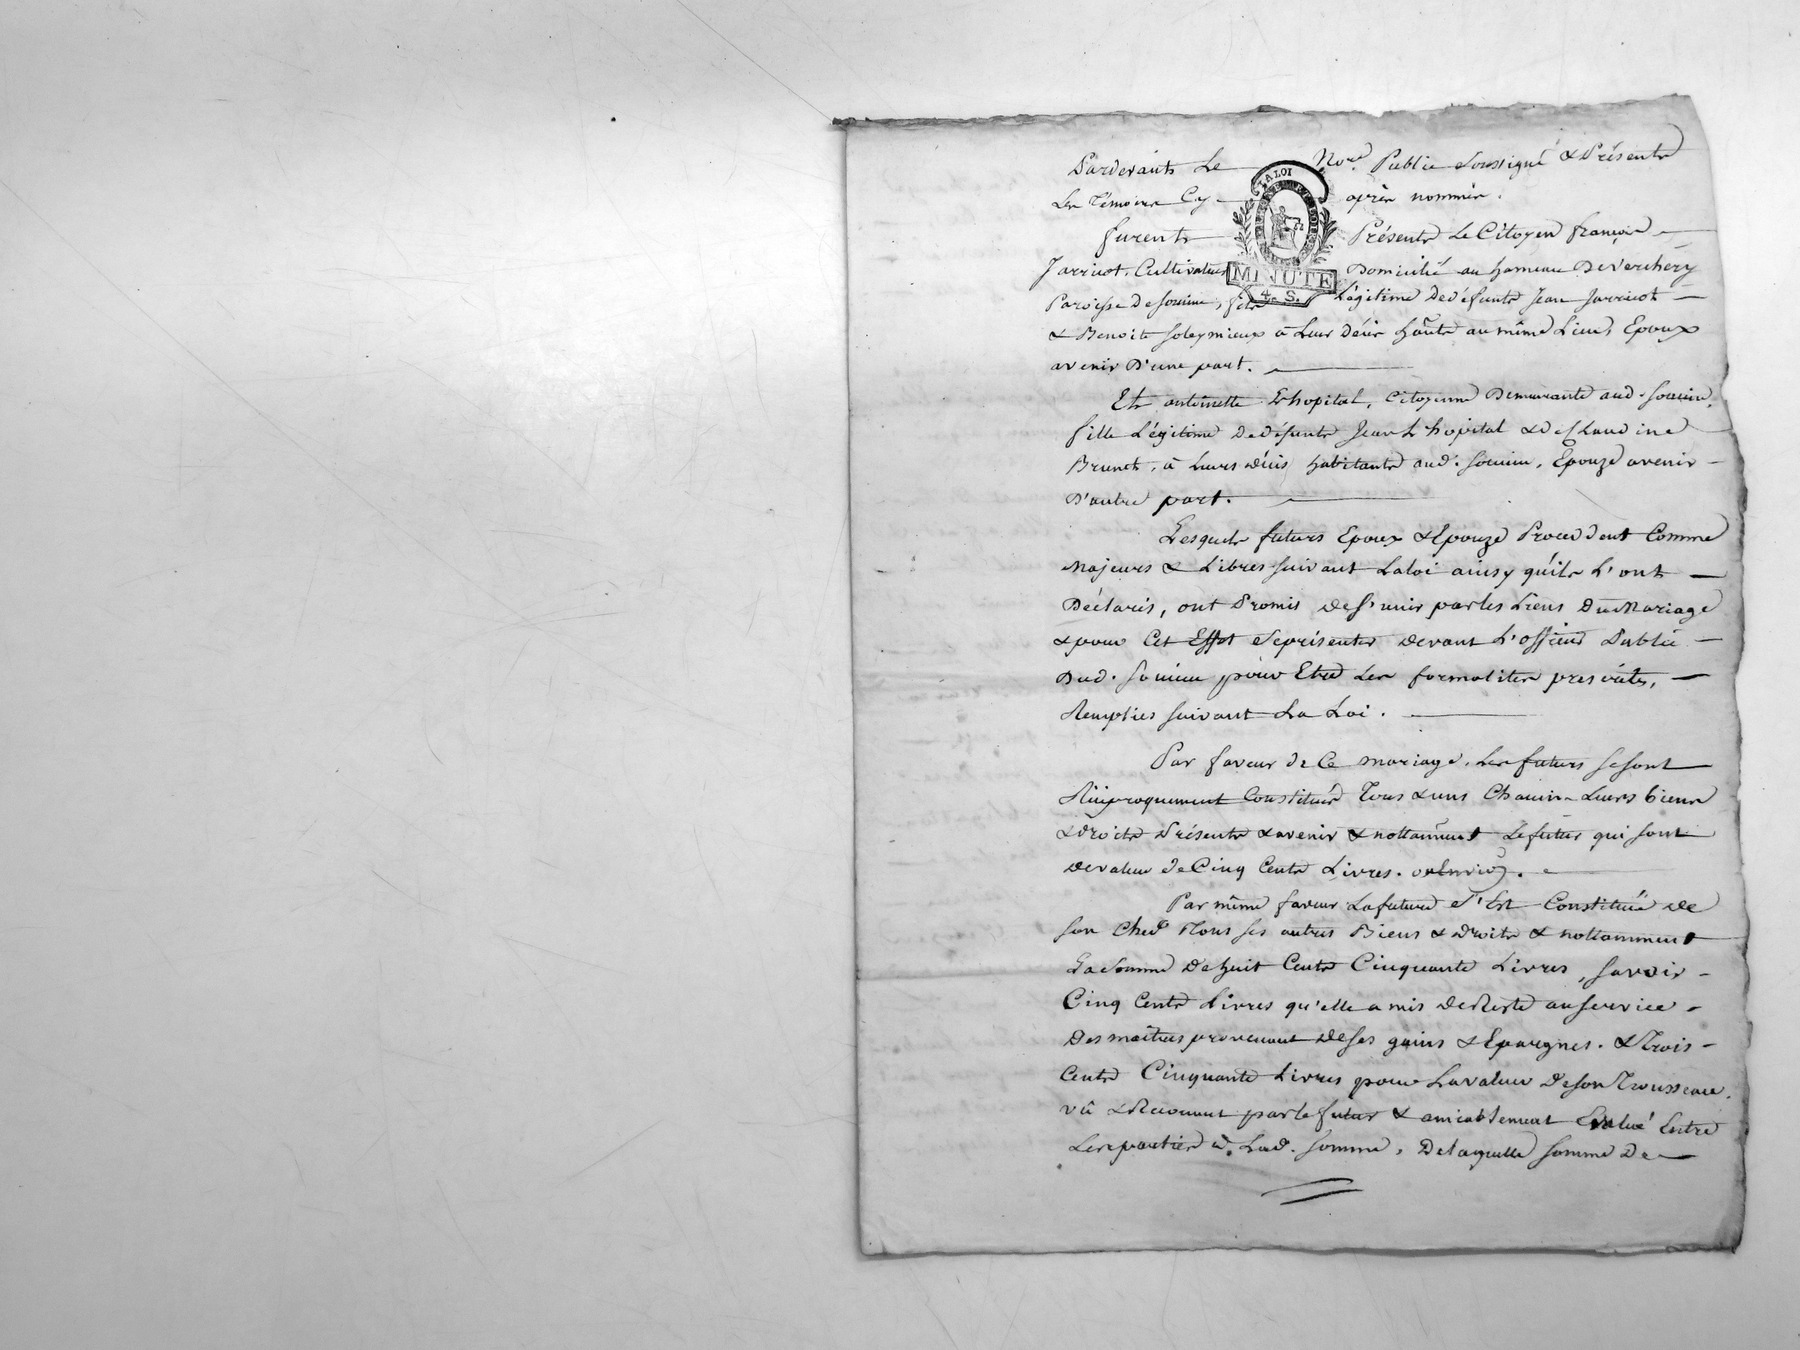 Pardevants Le Nore. Public soussigné & Présents
Les Témoins Cy après nommés.
LA LOI
furents Présents Le Citoyen françois
Jarricot, Cultivateur Domicilié au hameau De Verchery
MINUTE
4. S.
Paroisse De Souvin, fils Légitime De défunts Jean Jarricot
& Benoite Soleymieux à Leur décès habts au même Lieu, Epoux
avenir D'une part.
Ets antoinette Lhopital, Citoyenne Demeurante aud. Souvin,
fille Légitime De défunts Jean Lhopital & De Claudine
Brunet, à Leurs décès habitants aud. Souvin, Epouze avenir
D'autre part.
Lesquels futurs Epoux & Epouze Procedent Comme
Majeurs & Libres suivant La loi ainsy qu'ils L'ont
Déclarés, ont Promis de s'unir par les Liens Du Mariage
& pour Cet Effet se présenter devant L'officier Public
Dud. Souvin pour Etre Les formalités prescrites,
Remplies suivant La Loi.
Par faveur de Ce mariage, Les futurs se sont
Réciproquement Constitués Tous & uns Chacuns Leurs biens
& droits Présents & avenir & nottamment Le futur qui sont
De valeur de Cinq Cents Livres.
Par même faveur La future s'Est Constituée de
son Chef Tous ses autres Biens & Droits & nottamment
La Somme De huit Cents Cinquante Livres, savoir
Cinq Cents Livres qu'elle a mis de Reste au service
Des maîtres provenant de ses gains & Epargnes. & Trois
Cents Cinquante Livres pour La valeur De son Trousseau
vû & Reconnut par le futur & amiablement Evalué Entre
Les parties à Lad. somme, De laquelle somme De